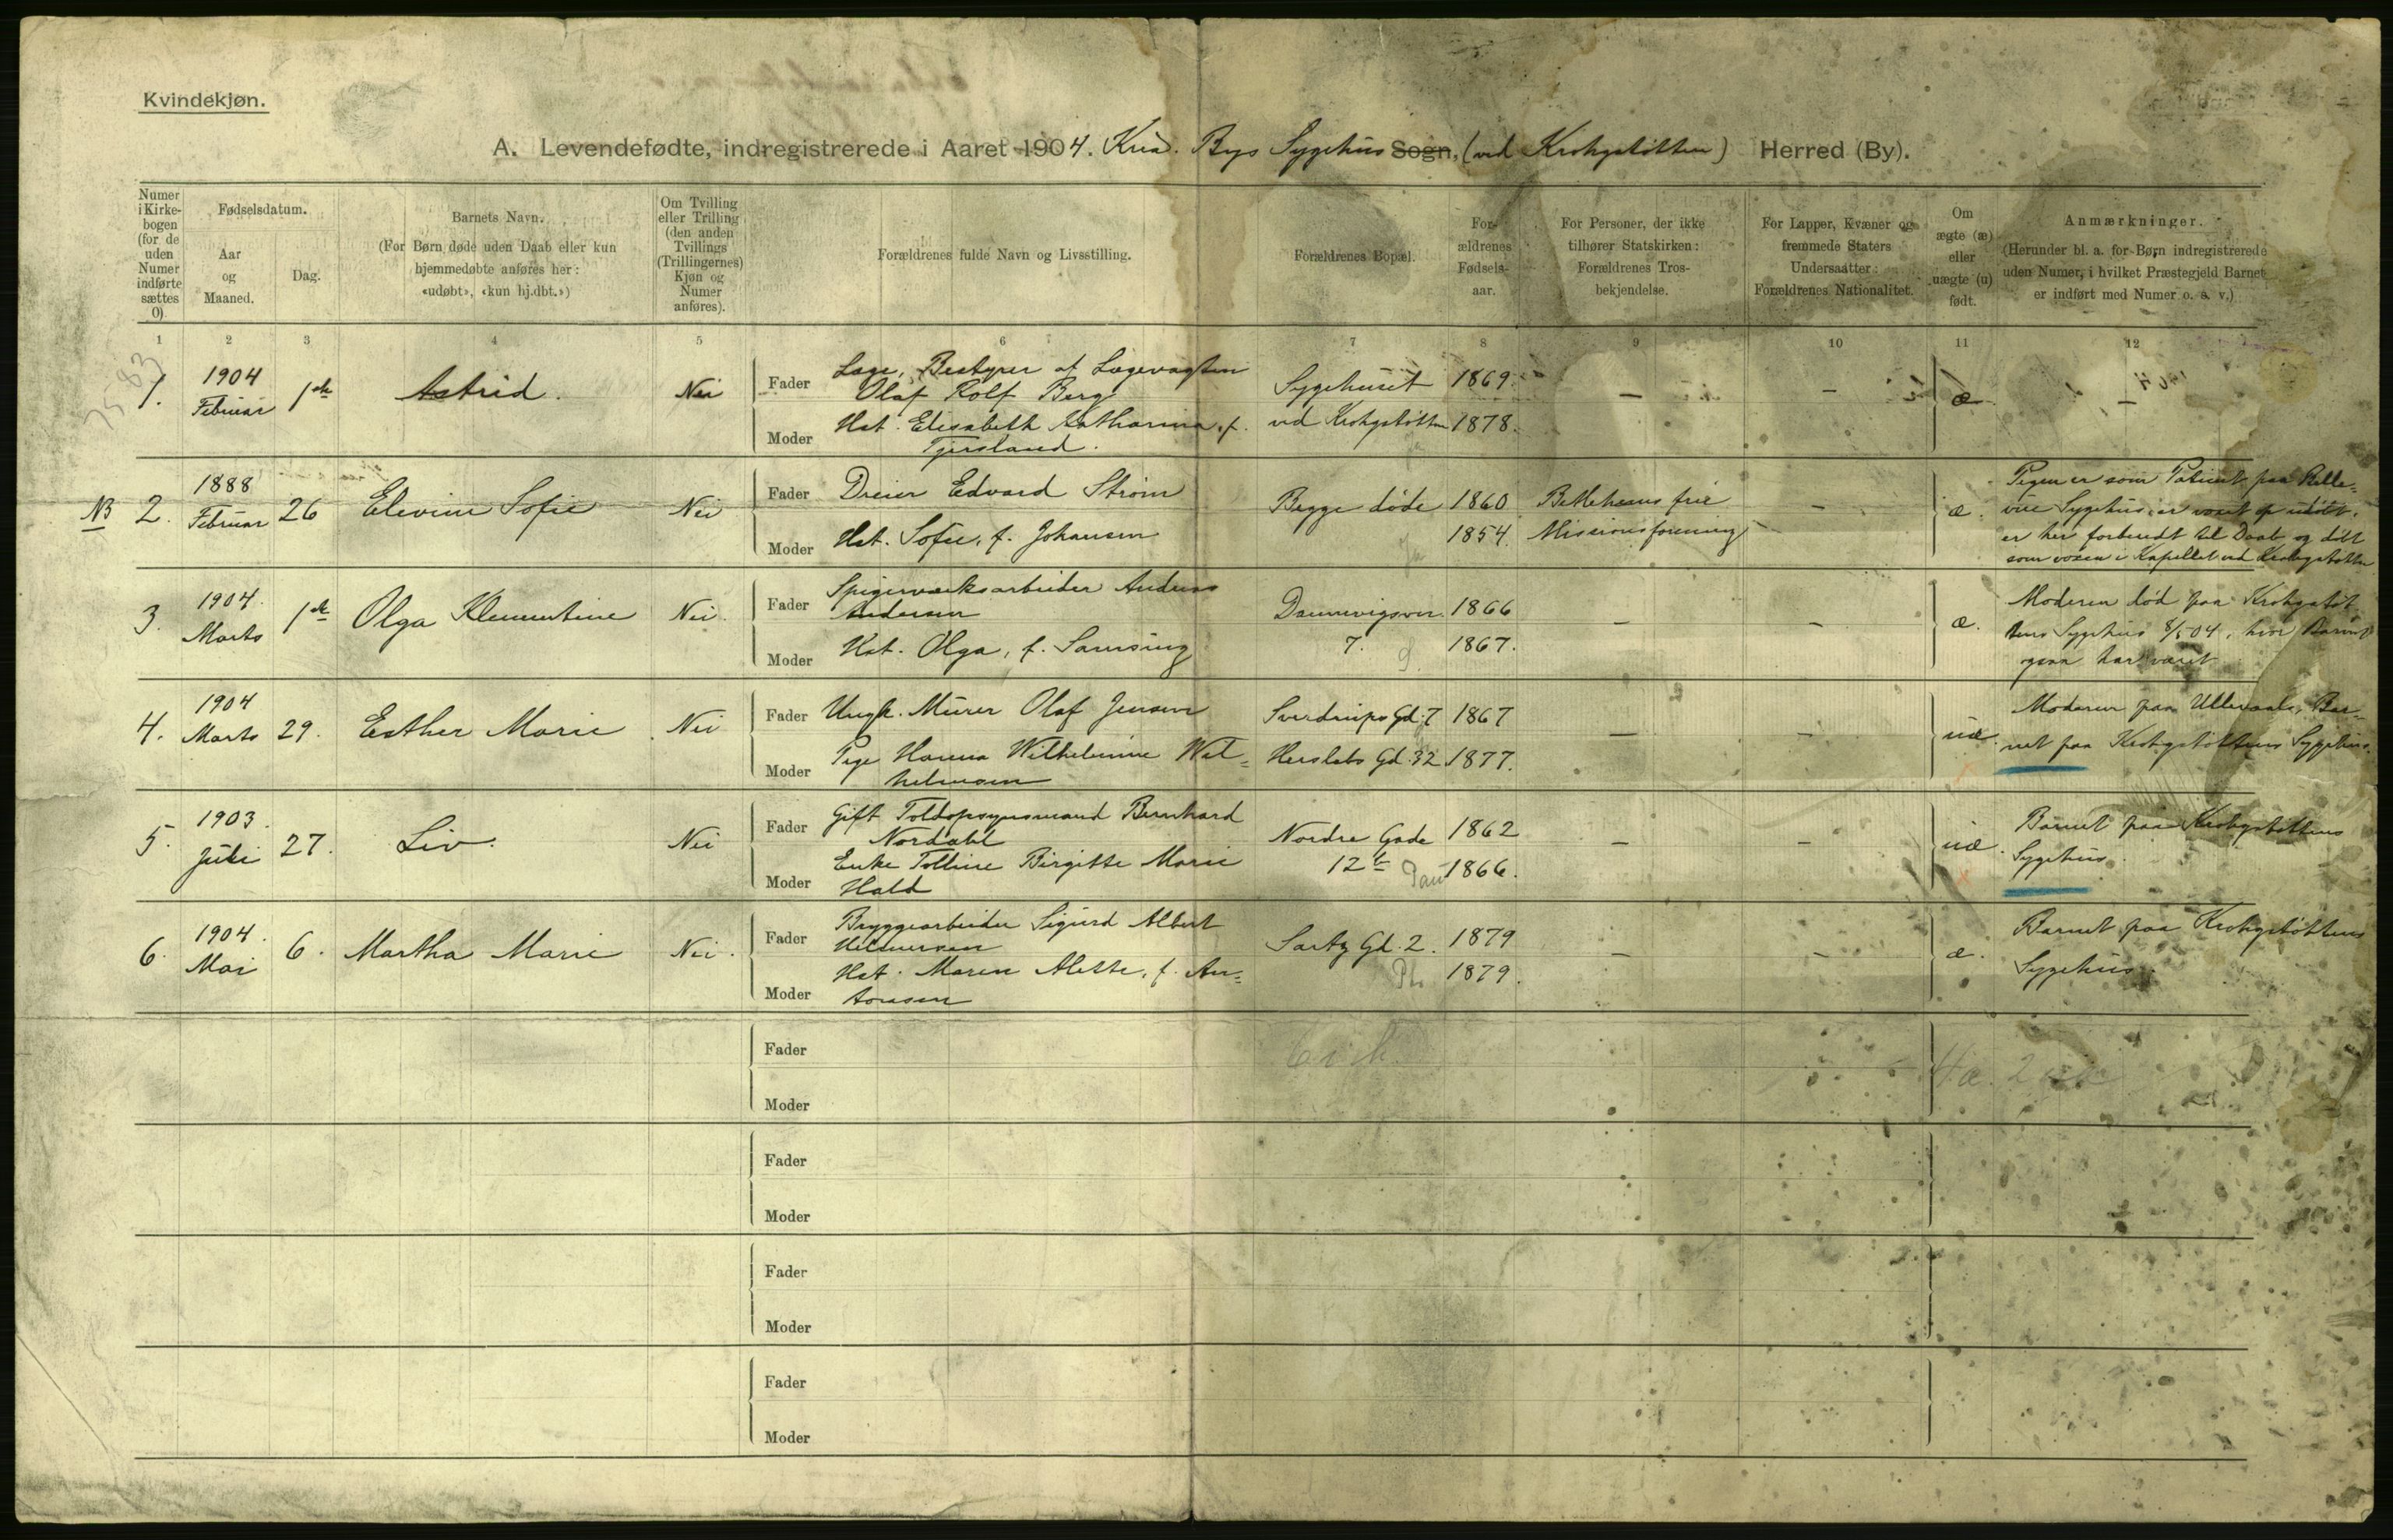 Kvindekjøn.
A. Levendefødte, indregistrerede i Aaret 1904. Kria. Bys Sygehus Sogn, (ved Krohgstøtten) Herred (By).
Numer i Kirkebogen (for de uden Numer indførte sættes 0)
Fødselsdatum.
Aar og Maaned.
Dag.
Barnets Navn.
(For Børn døde uden Daab eller kun hjemmedøbte anføres her: «udøbt», «kun hj.dbt.»)
Om Tvilling eller Trilling (den anden Tvillings (Trillingernes) Kjøn og Numer anføres).
Forældrenes fulde Navn og Livsstilling.
Forældrenes Bopæl.
Forældrenes Fødselsaar.
For Personer, der ikke tilhører Statskirken: Forældrenes Trosbekjendelse.
For Lapper, Kvæner og fremmede Staters Undersaatter: Forældrenes Nationalitet.
Om ægte (æ) eller uægte (u) født.
Anmærkninger.
(Herunder bl. a. for Børn indregistrerede uden Numer, i hvilket Præstegjeld Barnet er indført med Numer o. s. v.)
1 2 3 4 5 6 7 8 9 10 11 12
1. 1904 Februar 1ste Astrid. Nei
Fader Læge, Bestyrer af Lægevagten
Olaf Rolf Berg Sygehuset 1869. – – æ –
Moder Hst. Elisabeth Katharina, f. ved Krohgstøtten 1878.
Tjersland.
NB 2. 1888 Februar 26 Elevine Sofie Nei
Fader Dreier Edvard Strøm Begge døde 1860 Bethlehems frie – æ.
Moder Hst. Sofie, f. Johansen 1854. Missionsforening
Pigen er som Patient paa Belle-
vue Sygehus, er voxet op udøbt,
er her forberedt til Daab og døbt
som voxen i Kapellet ved Krohgstøtten
3. 1904. Marts 1ste Olga Klementine Nei.
Fader Spigerværksarbeider Anders
Andersen Dannevigsvn. 1866 – – æ.
Moder Hst. Olga, f. Samsing 7. 1867.
Moderen død paa Krohgstøt-
tens Sygehus 8/5 04, hvor Barnet
ogsaa har været
4. 1904 Marts 29. Esther Marie Nei
Fader Ungk. Murer Olaf Jensen Sverdrups Gd. 7 1867 – – uæ.
Moder Pige Hanna Wilhelmine Wil=
helmsen Herslebs Gd. 32 1877.
Moderen paa Ullevaal, Bar=
net paa Krohgstøttens Sygehus.
5. 1903. Juli 27. Liv. Nei
Fader Gift Toldopsynsmand Bernhard
Nordahl Nordre Gade 1862 – – uæ.
Moder Enke Tolline Birgitte Marie
Hald 12b 1866.
Barnet paa Krohgstøttens
Sygehus.
6. 1904. Mai 6. Martha Marie Nei.
Fader Bryggearbeider Sigurd Albert
Helmersen Sartz Gd. 2. 1879 – – æ.
Moder Hst. Maren Alette, f. An=
tonsen 1879.
Barnet paa Krohgstøttens
Sygehus.
Fader
Moder
4 æ. 2 uæ
Fader
Moder
Fader
Moder
Fader
Moder